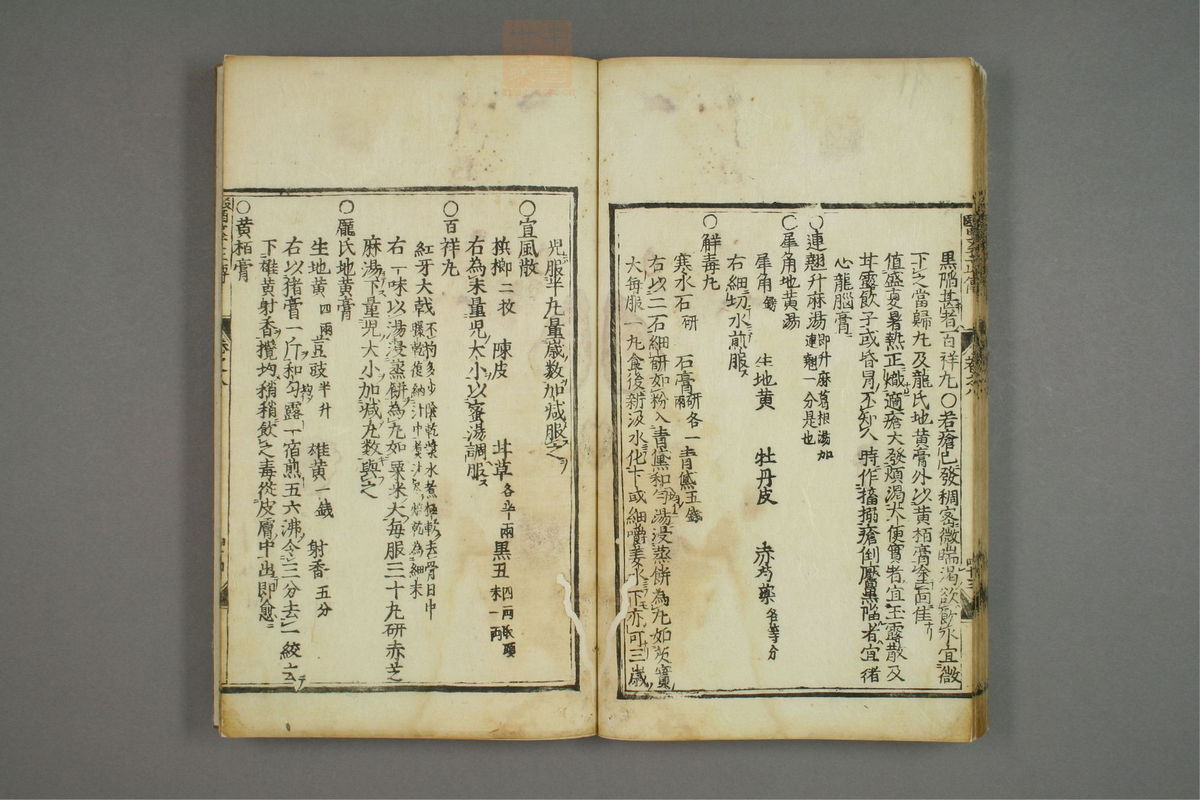 黒陥甚者百祥丸〇若瘡已發稠密微喘渇欲飲水宜微
下之當歸丸及龍氏地黄膏外以黄栢膏塗面佳
値盛夏暑熱正熾適瘡大發煩渇大便實者宜玉露散及
甘露飲子或昏冒不知人時作搐搦瘡倒黶黒陥者宜猪
心龍腦膏
〇連翹升麻湯 即升麻葛根湯加連翹一分是也
〇犀角地黄湯
犀角 生地黄 牡丹皮 赤芍藥 各等分
右細切水煎服
〇解毒丸
寒水石研 石膏研各一兩 青黛五錢
右以二石細研如粉入青黛和勻湯浸蒸餅為丸如芡實
大毎服一丸食後新汲水化下或細嚼姜水下亦可三歳
児服半丸量歳數加减服之
〇宣風散
梹榔二枚 陳皮 甘草各半兩 黒丑四兩取頭末一兩
右為末量児大小以蜜湯調服
〇百祥丸
紅牙大戟 不拘多少陰乾漿水煮極軟去骨日中曝乾復納汁中煮汁盡焙乾為細末
右一味以湯浸蒸餅為丸如粟米大毎服三十丸研赤芝
麻湯下量児大小加减丸數與之
〇龎氏地黄膏
生地黄四兩 豆豉半升 雄黄一錢 射香五分
右以猪膏一斤和勻露一宿煎五六沸令三分去一絞去
下雄黄射香攪均稍稍飲之毒從皮膚中出即愈
〇黄栢膏